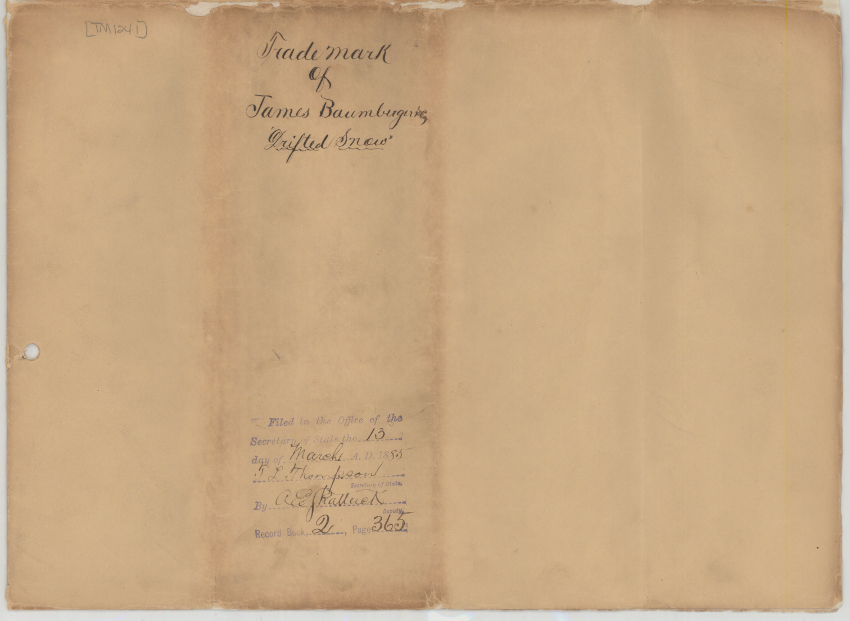 [TM1241]
Trade mark
Of
James Baumburger
"Drifted Snow"
Filed in the Office of the
Secretary of State the 13
day of March A. D. 1885
T. L. Thompson
Secretary of State.
By A. E. Shattuck
Deputy.
Record Book 2, Page 365